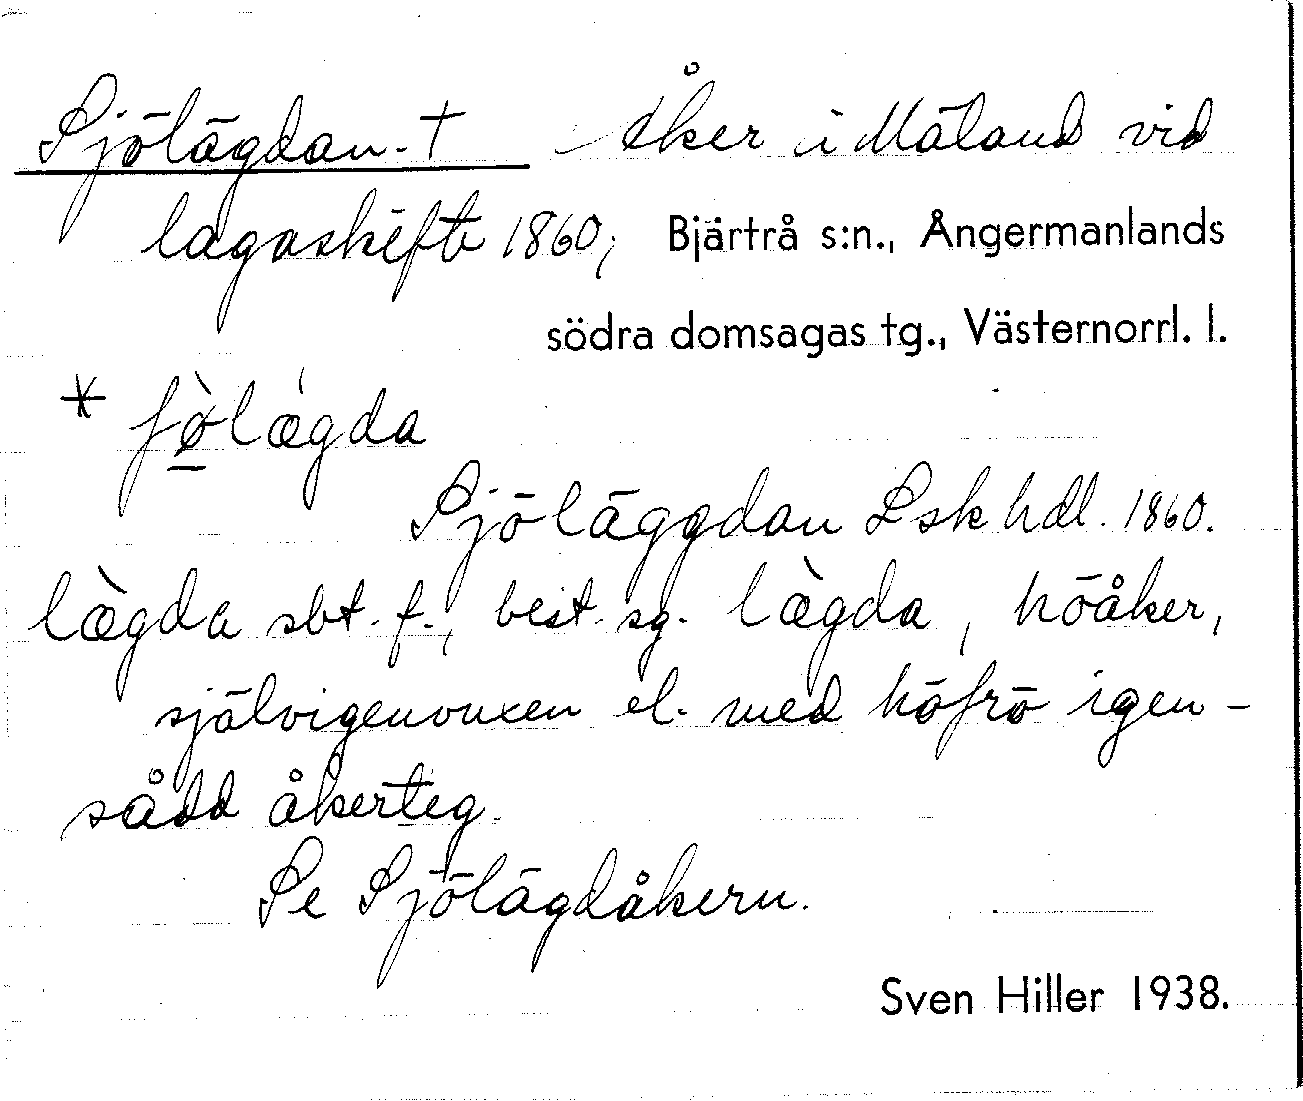 Sjölägdan. † Åker i Mäland vid
lagaskifte 1860; Bjärtrå s:n., Ångermanlands
södra domsagas tg., Västernorrl. l.
* ʃø̀lǽgda
Sjöläggdan Lsk hdl. 1860.
læ̀gda sbt. f., best. sg. læ̀gda, höåker,
självigenvuxen el. med höfrö igen-
sådd åkerteg.
Se Sjölägdåkern.
Sven Hiller 1938.